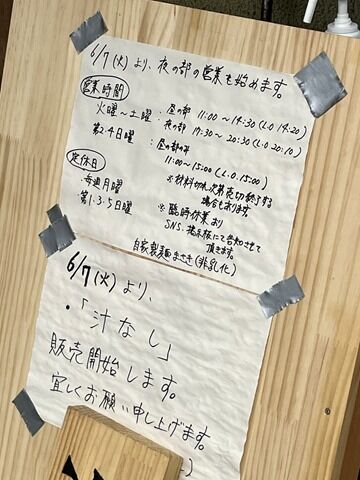 6/7(火)より、夜の部の営業も始めます。
営業時間
火曜〜土曜：昼の部 11:00〜14:30(L.O 14:20)
夜の部 17:30〜20:30(L.O 20:10)
第2.4日曜：昼の部のみ
11:00〜15:00(L.O.15:00)
※材料切れ次第売切終了する
場合もあります。
定休日
・毎週月曜
・第1.3.5日曜
※臨時休業あり
SNS、掲示板にて告知させて
頂きます。
自家製麺まさき(非乳化)
6/7(火)より、
・「汁なし」
販売開始します。
宜しくお願い申し上げます。